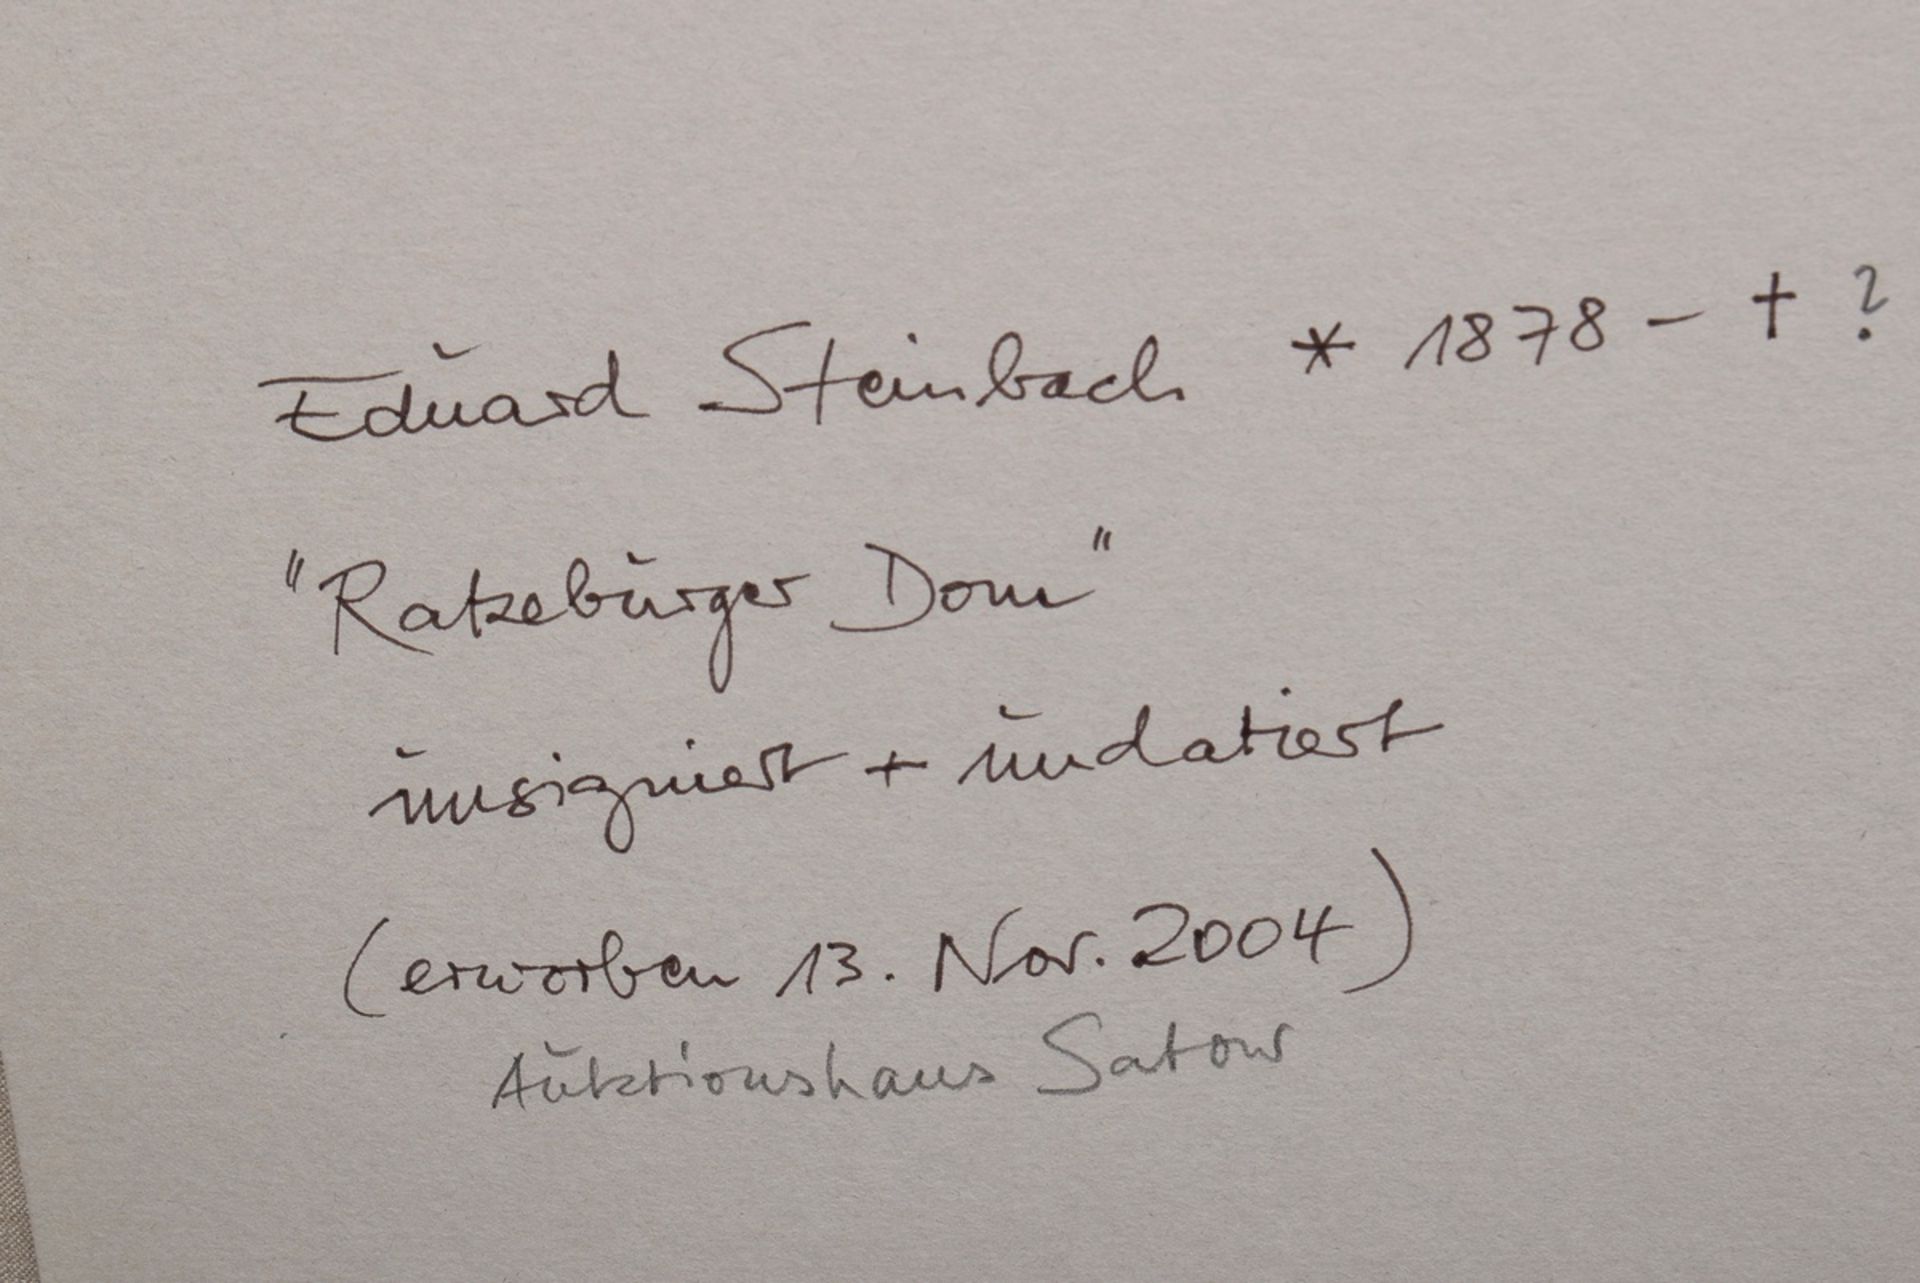 Eduard Steinbach * 1878 – † ?
"Ratzeburger Dom"
unsigniert + undatiert
(erworben 13. Nov. 2004)
Auktionshaus Satow